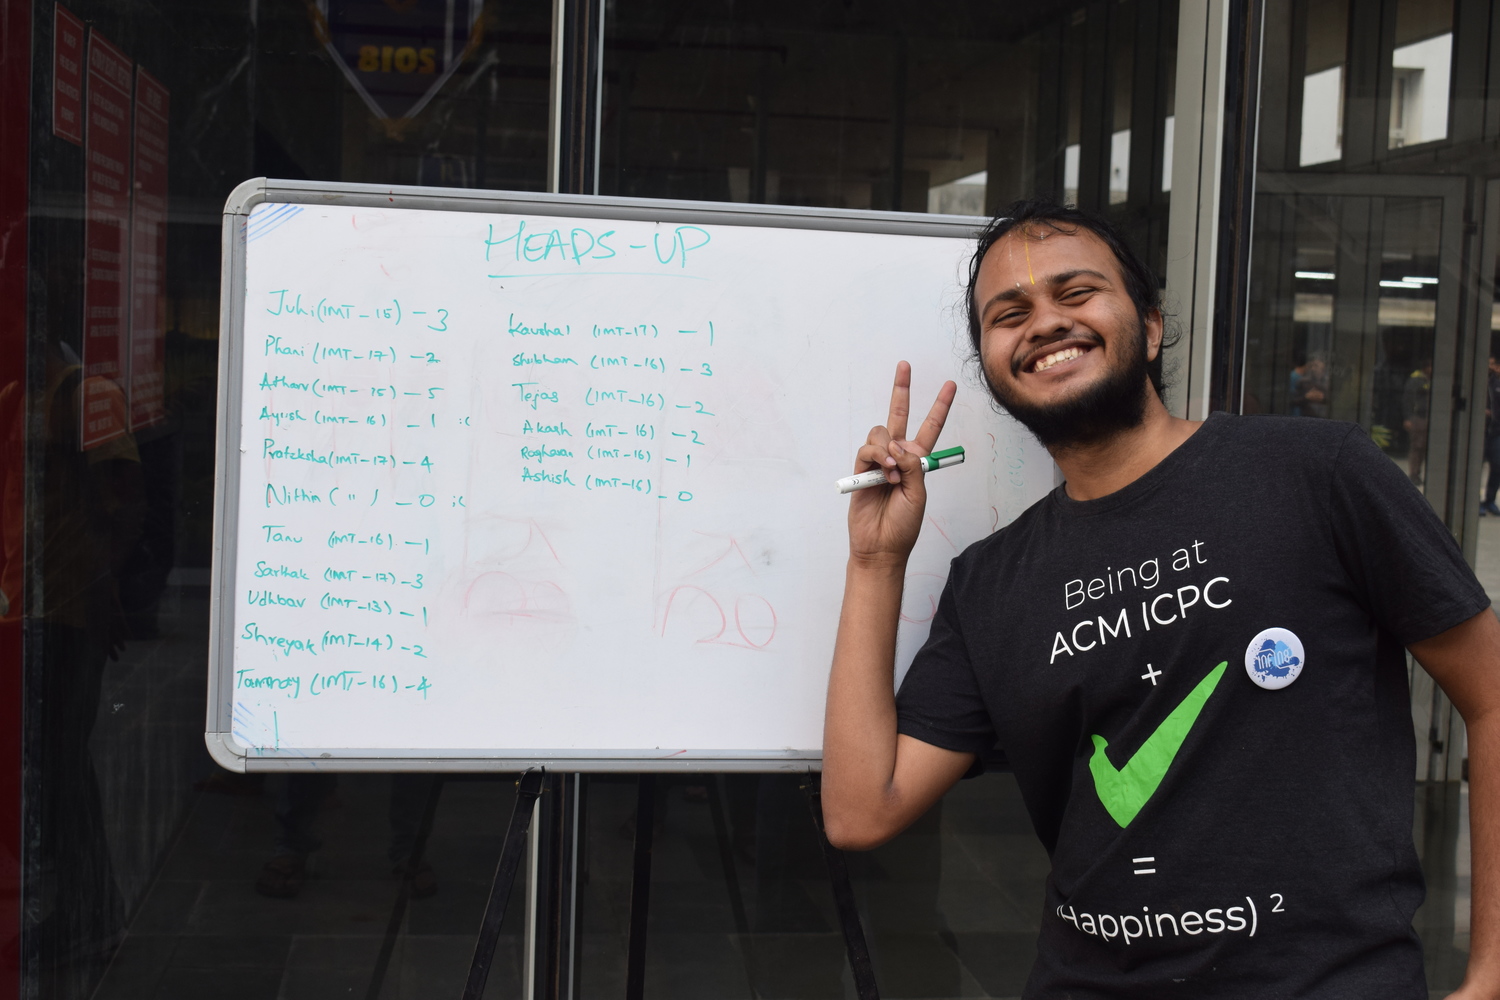 8102
HEADS-UP
Juhi (IMT-15) - 3
Phani (IMT-17) - 2
Atharv (IMT-15) - 5
Ayush (IMT-16) - 1 :(
Prateksha (IMT-17) - 4
Nithin ( " ) - 0 :(
Tanu (IMT-16) - 1
Sarthak (IMT-17) - 3
Udhbav (IMT-13) - 1
Shreyak (IMT-14) - 2
Tanmay (IMT-16) - 4
Kaushal (IMT-17) - 1
Shubham (IMT-16) - 3
Tejas (IMT-16) - 2
Akash (IMT-16) - 2
Raghavan (IMT-16) - 1
Ashish (IMT-16) - 0
Being at
ACM ICPC
+
=
(Happiness)²